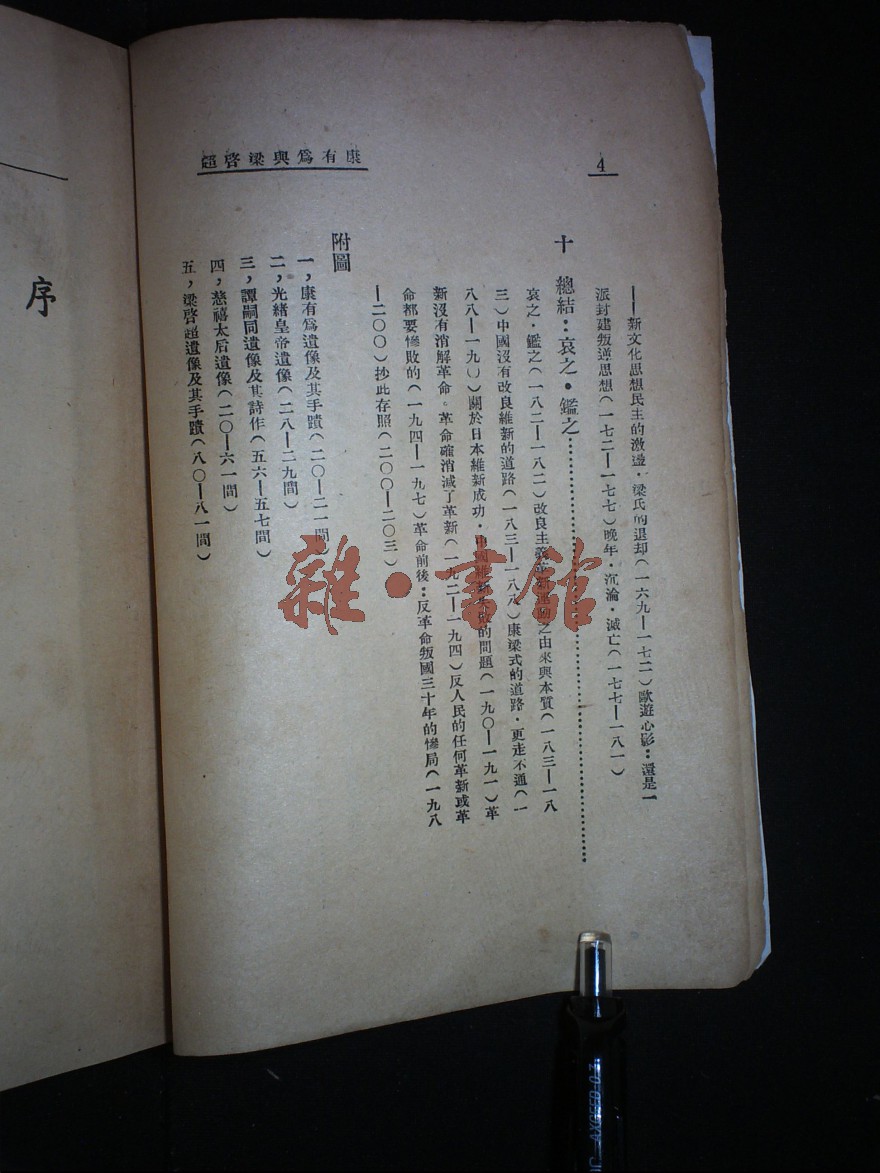 4
康有爲與梁啓超
——新文化思想民主的激盪·梁氏的退却(一六九—一七二)歐遊心影:還是一
派封建叛逆思想(一七二—一七七)晚年·沉淪·滅亡(一七七—一八一)
十 總結:哀之·鑑之
哀之·鑑之(一八二—一八二)改良主義革新運動之由來與本質(一八三—一八
三)中國沒有改良維新的道路(一八三—一八八)康梁式的道路·更走不通(一
八八—一九〇)關於日本維新成功·中國維新失敗的問題(一九〇—一九一)革
新沒有消解革命。革命確消滅了革新(一九二—一九四)反人民的任何革新或革
命都要慘敗的(一九四—一九七)革命前後:反革命叛國三十年的慘局(一九八
—二〇〇)抄此存照(二〇〇—二〇三)
附圖
一,康有爲遺像及其手蹟(二〇—二一間)
二,光緒皇帝遺像(二八—二九間)
三,譚嗣同遺像及其詩作(五六—五七間)
四,慈禧太后遺像(二〇—六一間)
五,梁啓超遺像及其手蹟(八〇—八一間)
序
雜·書館